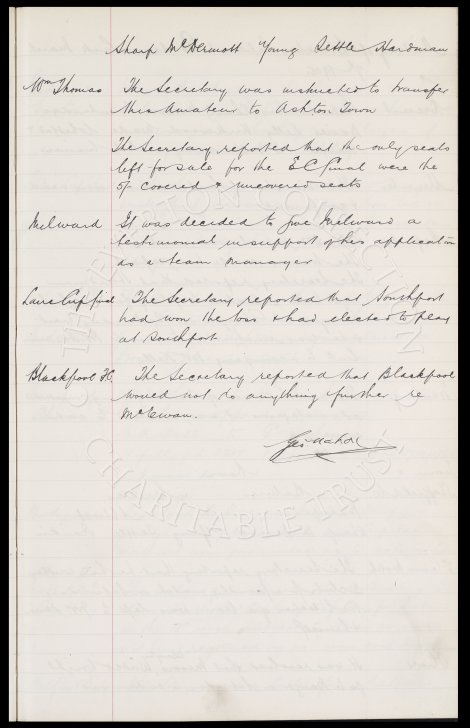 Sharp McDermott Young Settle Hardman
Wm Thomas The Secretary was instructed to transfer
this Amateur to Ashton Town
The Secretary reported that the only seats
left for sale for the E C final were the
5/ covered & uncovered seats
Milward It was decided to give Milward a
testimonial in support of his application
as a team manager
Lancs Cup final The Secretary reported that Southport
had won the toss & had elected to play
at Southport
Blackpool FC The Secretary reported that Blackpool
would not do anything further re
McEwan.
Geo Mahon
THE EVERTON COLLECTION
CHARITABLE TRUST